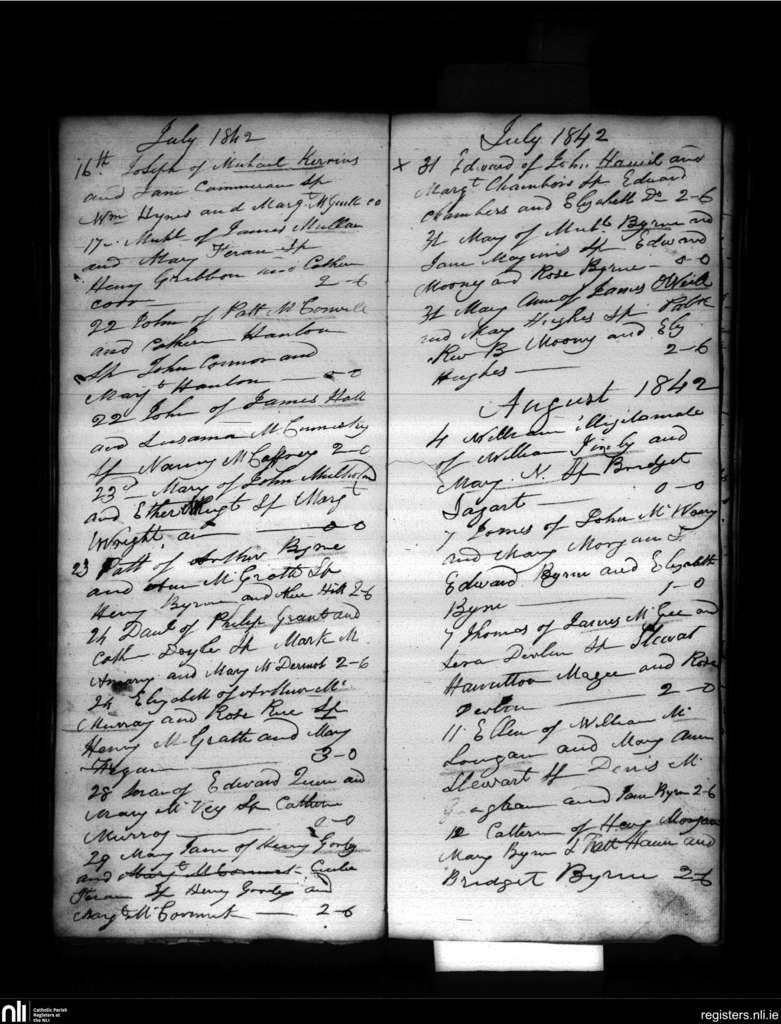 July 1842
16th Joseph of Michael Kerrins
and Jane Commerson Sp
Wm Hynes and Margt McGurk 00
17 Michl of James Mullan
and Mary Feran Sp
Henry Gribbon and Cathrn
2-6
22 John of Patt McConvill
and Cathrn Hanlon
Sp John Connor and
Margt Hanlon — 0-0
22 John of James Hall
and Susanna McCumisky
Sp Nancy McCaffrey 2-0
23d Mary of John Mulholn
and Ether Sp Margt
Wright — 0-0
23 Patt of Arthur Byrne
and Ann McGrath Sp
Henry Byrne and Hill 2-6
24 Danl of Philip Grant and
Cath Doyle Sp Mark M
and Mary McDermot 2-6
24 Elizabeth of Arthur Mc
Murray and Rose Rice Sp
Henry McGrath and Mary
Fegan — 3-0
28 of Edward Quin and
Mary McVey Sp Cathrn
Murray — 0-0
29 Mary Jane of Henry
and Margt McCormick Cecilia
Feran Sp Henry and
Margt McCormick — 2-6
July 1842
x 31 Edward of John and
Margt Chambers Sp Edward
Chambers and Elizabeth Do 2-6
31 Mary of Michl Byrne and
Jane Maginis Sp Edward
Mooney and Rose Byrne — 0-0
31 Mary Ann of James ONeill
and Mary Hughes Sp
Rev B Moony and Eliz
Hughes — 2-6
August 1842
4 William illigitamate
of William and
Mary N. Sp Bridget
Tagart — 0-0
7 James of John Mc
and Mary Morgan S.
Edward Byrne and Elizabeth
Byrne — 1-0
7 Thomas of James McGee and
Devlin Sp Stewat
Hamilton Magee and Rose
Devlin — 2-0
11 Ellen of William Mc
and Mary Ann
Stewart Sp Denis Mc
and Jane Byrn 2-6
12 Cattern of Heny Morgan
Mary Byrn S Patt and
Bridget Byrne 2-6
nli
Catholic Parish
Registers at
the NLI
registers.nli.ie